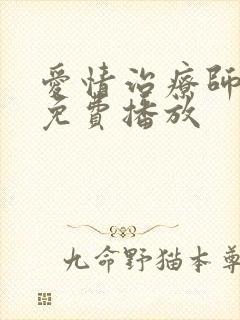 愛情治療師
免費播放
九命野猫本尊